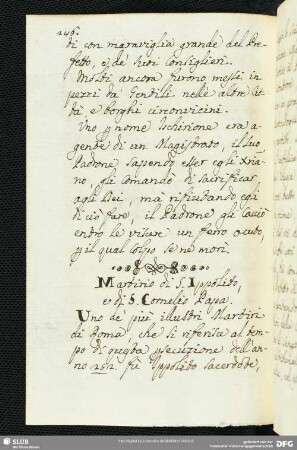 246.
di con maraviglia grande del Pre-
fetto, e de' suoi Consiglieri.
Molti ancora furono messi in
pezzi da' Gentili nelle altre Cit-
tà, e borghi circonvicini.
Uno p nome Ischirione era a-
gente di un Magistrato, il suo
Padrone sapendo esser egli Xria-
no, gli Comandò di sacrificar
agli Dei, mà rifiutando egli
di ciò fare, il Padrone gli Cacciò
entro le viscere un ferro acuto,
p il qual Colpo se ne morì.
Martirio di S. Ippolito,
e di S. Cornelio Papa.
Uno de' più illustri Martiri
di Roma, che si riferisca al tem-
po di questa psecuzione dell'an-
no 252. fù Ippolito Sacerdote,
SLUB
Wir führen Wissen.
gefördert von der
DFG